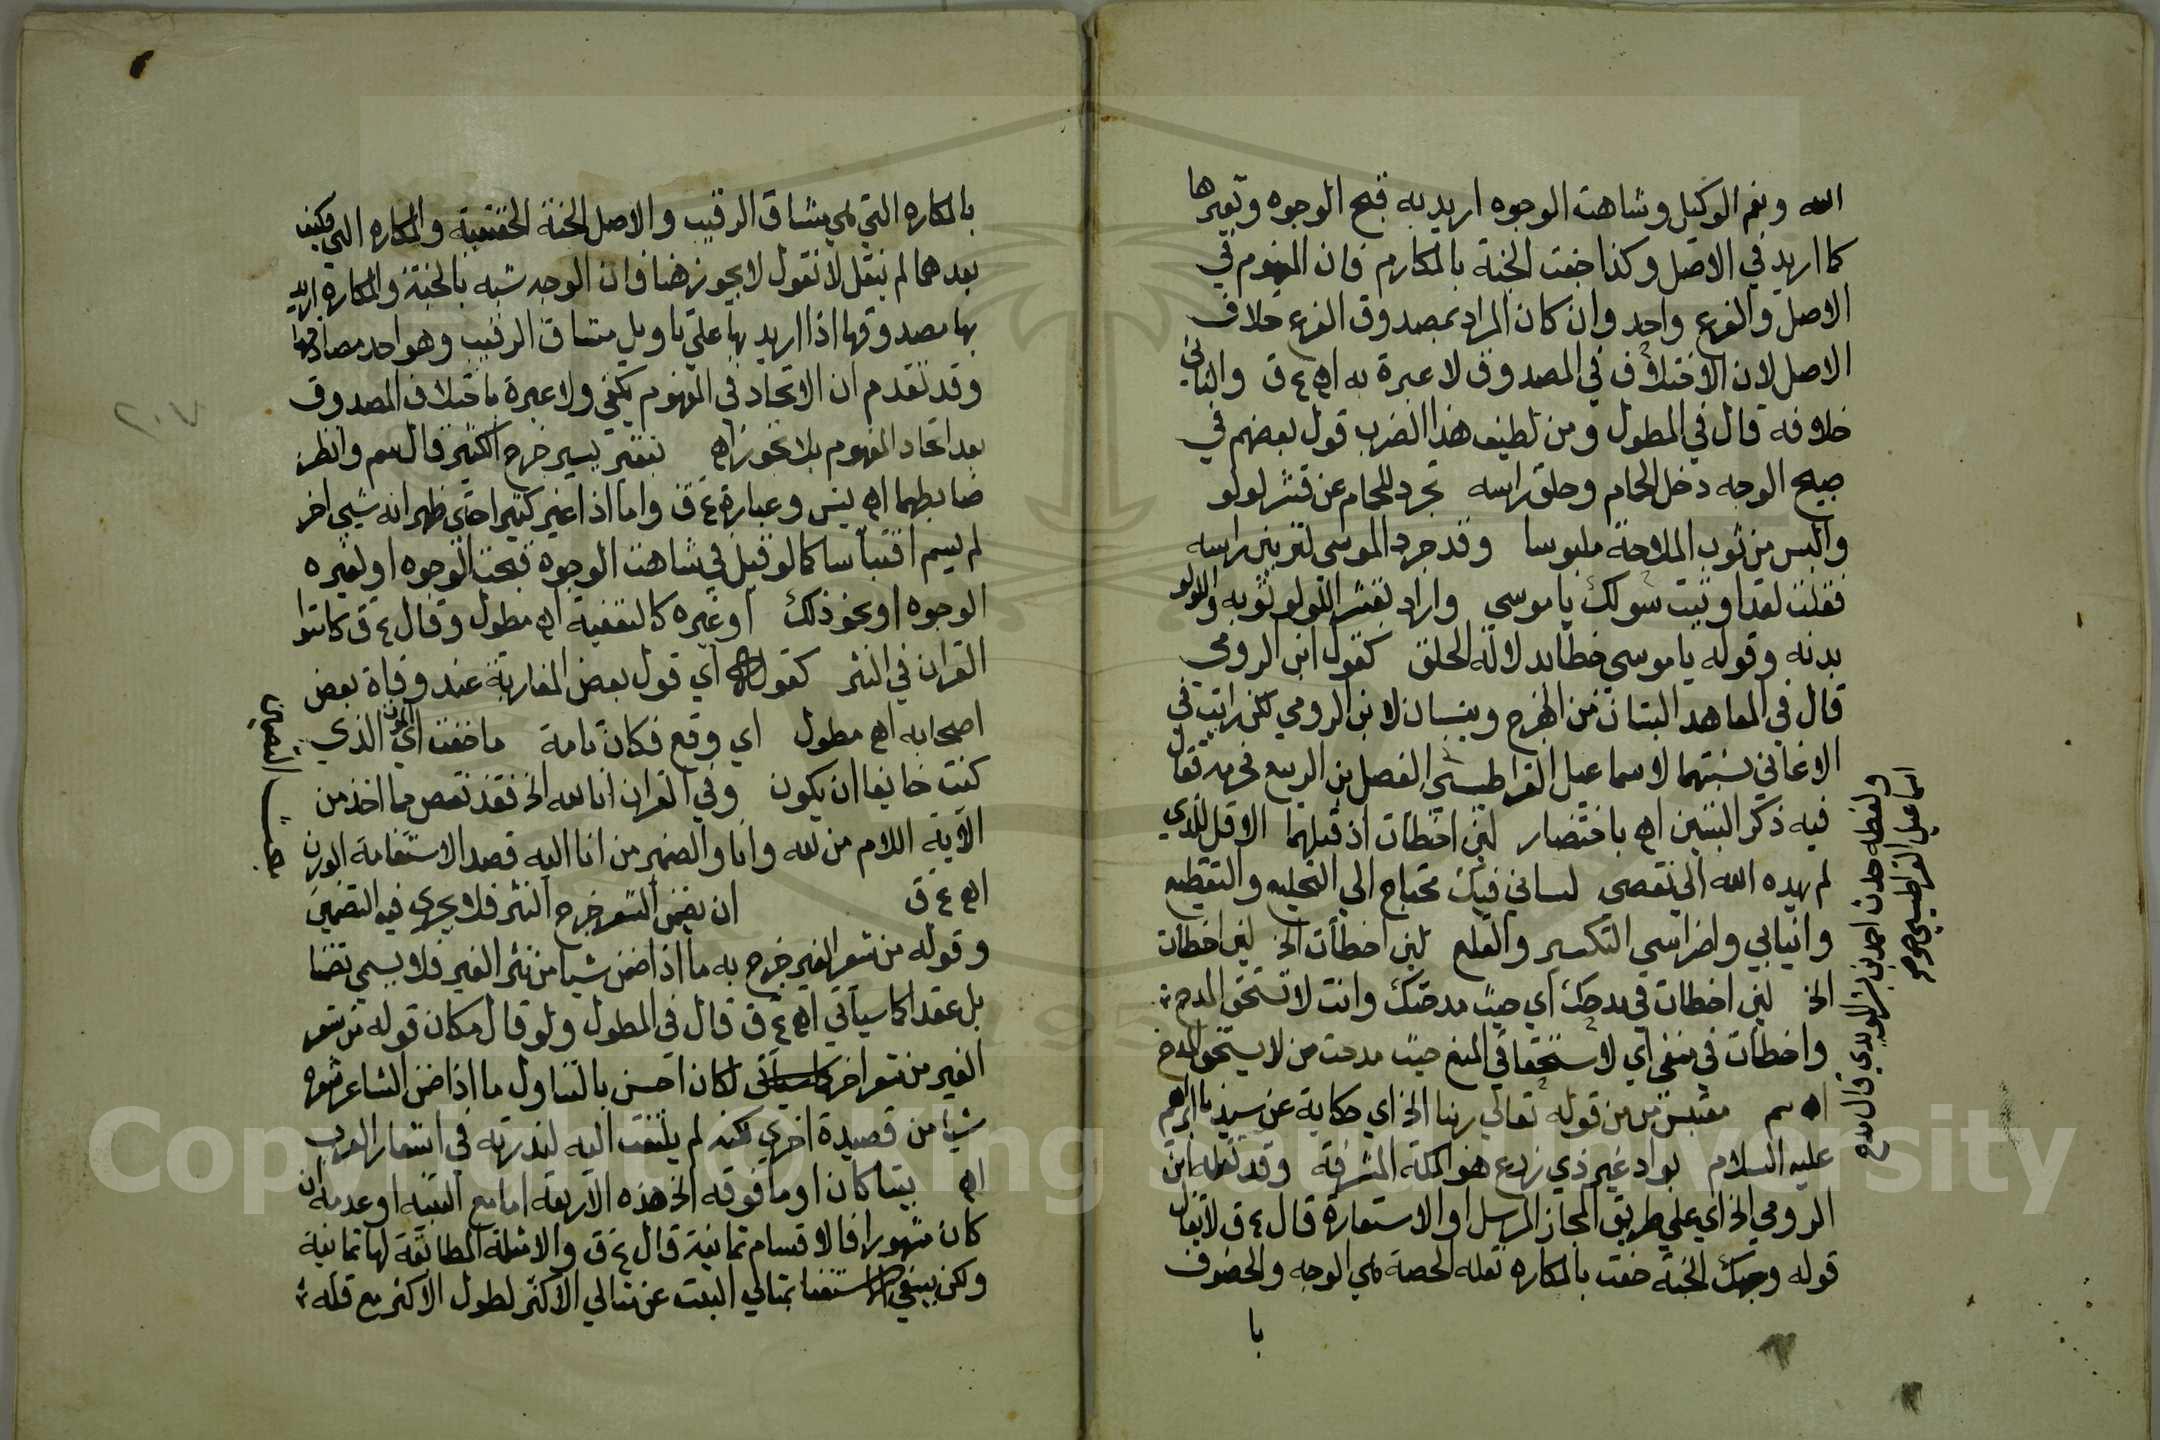 الله ونعم الوكيل وشاهت الوجوه اريد به قبح الوجوه وتغيرها
كما اريد في الاصل وكذا حفت الجنة بالمكاره فان المفهوم في
الاصل والفرع واحد وان كان المراد بمصدوق الفرع خلاف
الاصل لان الاختلاف في المصدوق لا عبرة به اه ع ق والثاني
خلافه قال في المطول ومن لطيف هذا الضرب قول بعضهم في
صبيح الوجه دخل الحمام وحلق راسه تجرد للحمام عن قشر لولو
والبس من ثوب الملاحة ملبوسا وقد جرد الموسى لتزيين راسه
فقلت لقد اوتيت سولك يا موسى واراد بقشر اللولو ثوبه واللولو
بدنه وقوله يا موسي خطابه لالة الحلق كقول ابن الرومي
قال في المعاهد البيتان من الهزج وينسبان لابن الرومي لكن رايت في
الاغاني نسبتهما لاسماعيل القراطيسي الفضل بن الربيع فحرمه فقال
فيه ذكر البيتين اه باختصار لئن اخطات اذ قبلهما الا قل للذي
لم يهده الله الي نفعي لساني فيك محتاج الي التخليع والتقطيع
وانيابي واضراسي التكسير والقلع لئن اخطأت الخ لئن اخطات
الخ لئن اخطات في مدحك اي حيث مدحتك وانت لا تستحق المدح
واخطات في منعي اي لاستحقاقي المنع حيث مدحت من لا يستحق المدح
اه سم مقتبس من قوله تعالي ربنا الخ اي حكاية عن سيدنا ابراهيم
عليه السلام بواد غير ذي زرع هو مكة المشرفة وقد نقله ابن
الرومي الخ اي علي طريق المجاز المرسل او الاستعارة قال ع ق لا يقال
قوله وجهك الجنة حفت بالمكاره نقله الحصة لمي الوجه والحضوف
با
ولفظه حدث احمد بن بشر قال مدح
اسماعيل القراطيسي
بالمكاره التي لمي مشاق الرقيب والاصل الجنة الحقيقية والمكاره التي فكيف
بعدهما لم ينقل لانا نقول لا يجوز هنا فان الوجه شبه بالجنة والمكاره اريد
بها مصدوقها اذا اريد بها علي تاويل مشاق الرقيب وهو احد مصادقها
وقد تقدم ان الاتحاد في المفهوم يكفي ولا عبرة باختلاف المصدوق
بعد اتحاد المفهوم بلا تجوز اه بتغيير يسير خرج الكثير قال سم وانظر
ضابطهما اه يس وعبارة ع ق واما اذا غير كثيرا حتي ظهر انه شيي اخر
لم يسم اقتباسا كما لو قيل في شاهت الوجوه قبحت الوجوه او لغيره
الوجوه او نحو ذلك او غيره كالتقفية اه مطول وقال ع ق
القران في النثر كقوله اي قول بعض المغاربة عند وفاة بعض
اصحابه اه مطول اي وقع فكان تامة ما خفت اي الذي
كنت خايفا ان يكون وفي القران انا لله الخ فقد نقص مما اخذ من
الآية اللام من لله وانا والضمير من انا اليه قصد الاستقامة الوزن
اه ع ق ان يضمن الشعر خرج النثر فلا يجري فيه التضمين
وقوله من شعر الغير خرج به ما اذا ضمن شيا من نثر الغير فلا يسمي تضمينا
بل عقدا كما سياتي اه ع ق قال في المطول ولو قال مكان قوله من شعر
الغير من شعر اخر لكان احسن بالتناول ما اذا ضمن الشاعر شعره
شيا من قصيدة اخري لكنه لم يلتفت اليه لندرته في اشعار العرب
اه بيتا كان او ما فوقه الخ هذه الاربعة اما مع التنبيه او عدمه ان
كان مشهورا فالاقسام ثمانية قال ع ق والامثلة المطابقة لها ثمانية
ولكن ينبغي الاستغنا بمثالي البيت عن مثالي الاكثر لطول الاكثر مع قلة